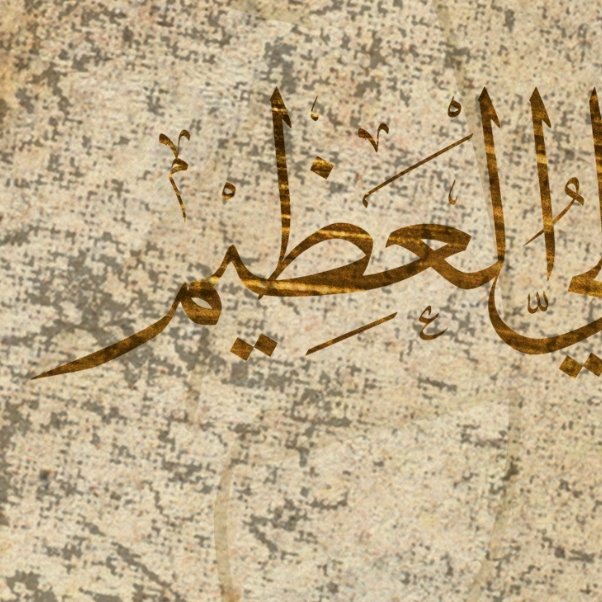 العظيم